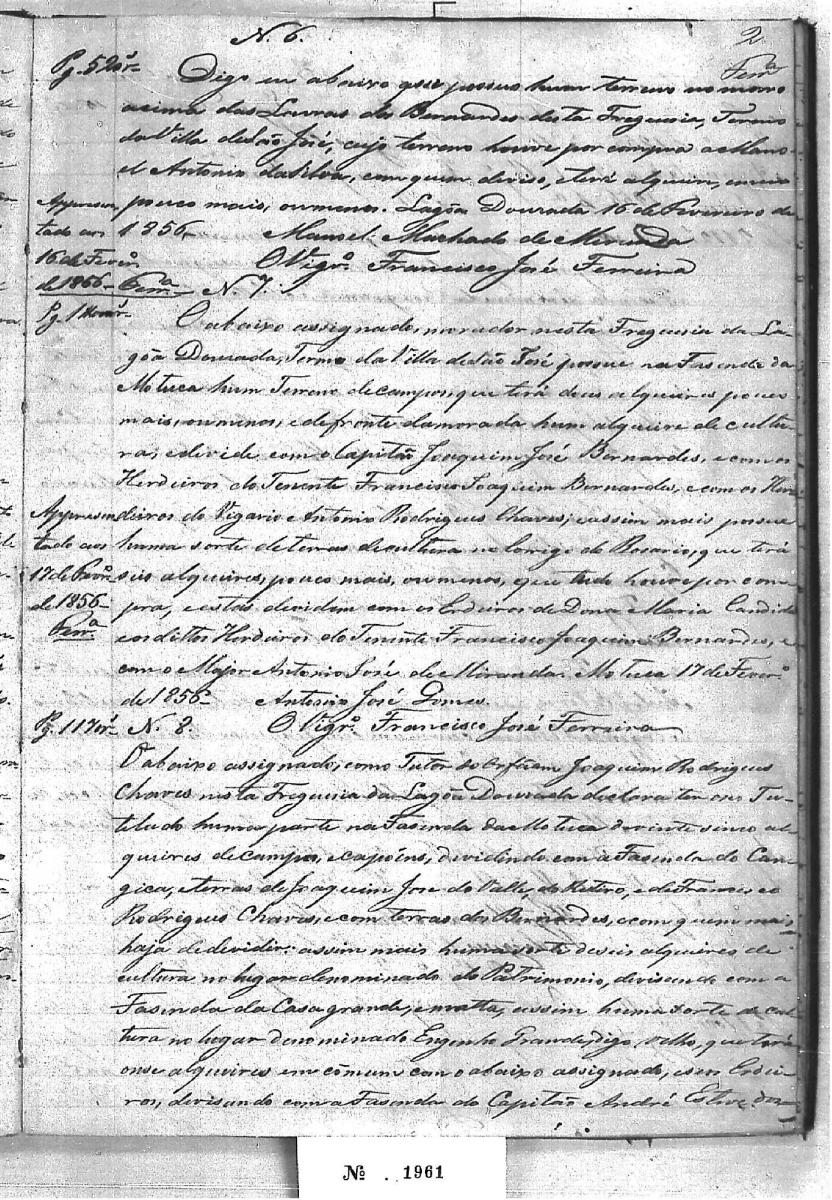 N. 6.
2
Ferrª
Pg. 520r
Digo eu abaixo que possuo hum terreno no morro
acima das Lavras dos Bernardes desta Freguesia, Termo
da Villa de São José, cujo terreno houve por compra a Mano-
el Antonio da Silva, com quem deviso, e terá alqueire, e meio
pouco mais, ou menos. Lagôa Dourada 16 de Fevereiro de
1856. Manoel Machado de Miranda
O Vigrº. Francisco José Ferreira
Appresen
tado aos
16 de Feverº
de 1856
Ferrª
N. 7.
O abaixo assignado, morador nesta Freguesia da La-
gôa Dourada, Termo da Villa de São José possue na Fasenda da
Motuca hum Terreno de campos, que terá deus alqueires pouco
mais, ou menos, e defronte da morada hum alqueire de cultu-
ra, e devide com o Capitão Joaquim José Bernardes, e com os
Herdeiros do Tenente Francisco Joaquim Bernardes, e com os Her-
deiros do Vigario e Antonio Rodrigues Chaves; e assim mais possue
huma sorte de terras de cultura no Corrigo do Rosario, que terá
seis alqueires, pouco mais, ou menos, e que tudo houve por com-
pra, e estas devidem com os Erdeiros de Dona Maria Candida
e os dittos Herdeiros do Tenente Francisco Joaquim Bernardes, e
com o Major Antonio José de Miranda. Motuca 17 de Feverº
de 1856. Antonio José Gomes.
O Vigrº. Francisco José Ferreira
Appresen
tado aos
17 de Fevrº
de 1856
Ferrª
N. 8.
O abaixo assignado, como Tutor do Orfão Joaquim Rodrigues
Chaves nesta Freguesia da Lagôa Dourada declara ter o seo Tu-
telado huma parte na Fasenda da Motuca de vinte sinco al-
queires de campo, e capoens, devidindo com a Fasenda do Can-
gica, e terras de Joaquim Jose do Valle, do Retiro, e de Francisco
Rodrigues Chaves, e com terras dos Bernardes, e com quem mais
haja de devidir: assim mais huma sorte de seis alqueires de
cultura no lugar denominado do Patrimonio, devisando com a
Fasenda da Casa grande, e matta, assim huma sorte de cul-
tura no lugar denominado Engenho Grande, digo, velho, que terá
onse alqueires em cômum com o abaixo assignado, e seos Erdei-
ros, devisando com a Fasenda do Capitão André
Nº 1961